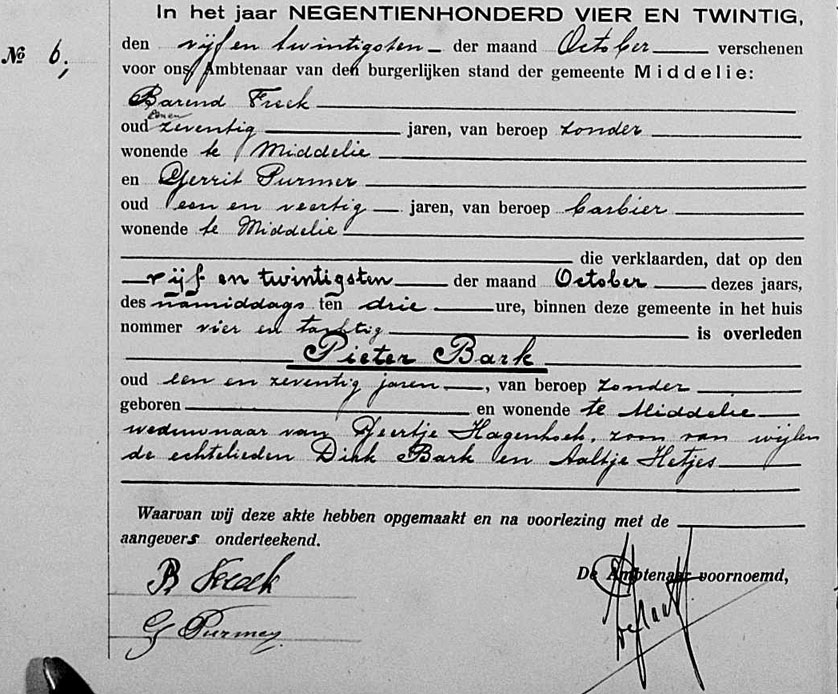 In het jaar NEGENTIENHONDERD VIER EN TWINTIG,
№ 6, den vijf en twintigsten der maand October verschenen
voor ons, Ambtenaar van den burgerlijken stand der gemeente Middelie:
Barend
oud zeventig jaren, van beroep zonder
wonende te Middelie
en Gerrit Purmer
oud een en veertig jaren, van beroep barbier
wonende te Middelie
die verklaarden, dat op den
vijf en twintigsten der maand October dezes jaars,
des namiddags ten drie ure, binnen deze gemeente in het huis
nommer vier en tachtig is overleden
Pieter Bark
oud een en zeventig jaren, van beroep zonder
geboren en wonende te Middelie
weduwnaar van Geertje Hagenhoek, zoon van wijlen
de echtelieden Dirk Bark en Aaltje Hetjes
Waarvan wij deze akte hebben opgemaakt en na voorlezing met de
aangevers onderteekend.
De Ambtenaar voornoemd,
B
G Purmer